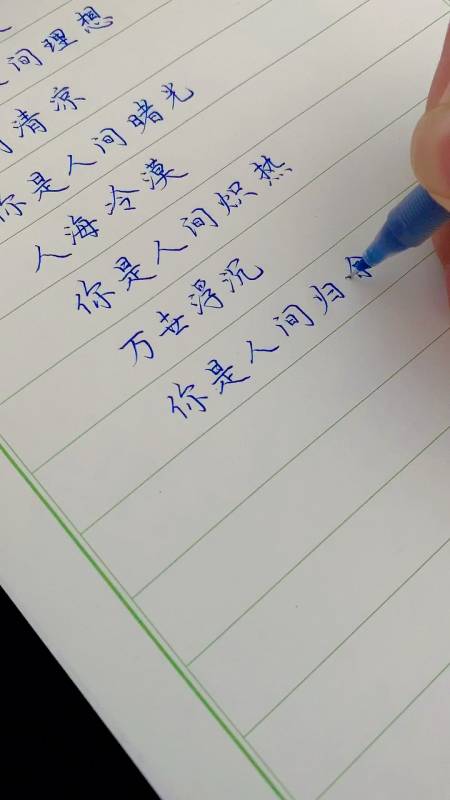 人间理想
清凉
你是人间曙光
人海冷漠
你是人间炽热
万世浮沉
你是人间归